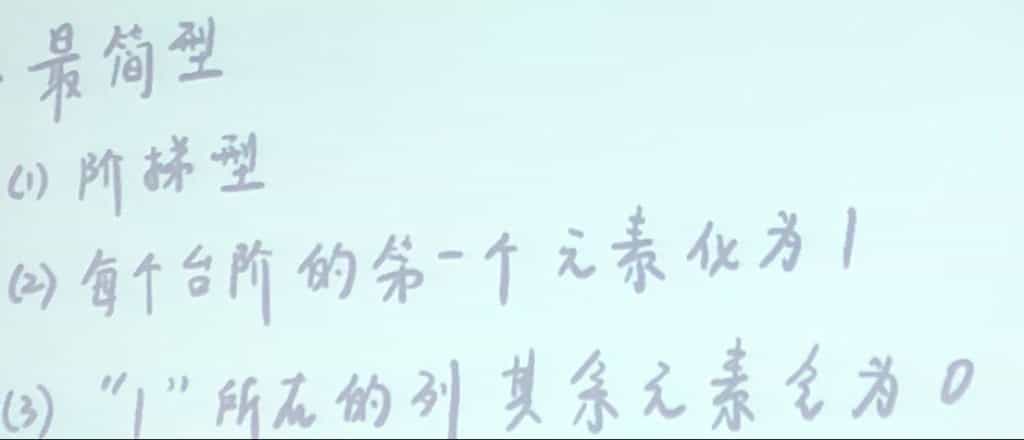 最简型
(1) 阶梯型
(2) 每个台阶的第一个元素化为1
(3) "1"所在的列其余元素全为0